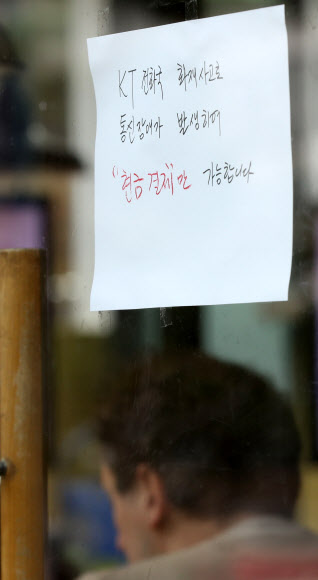 KT 전화국 화재사고로
통신장애가 발생하여
"현금결제"만 가능합니다